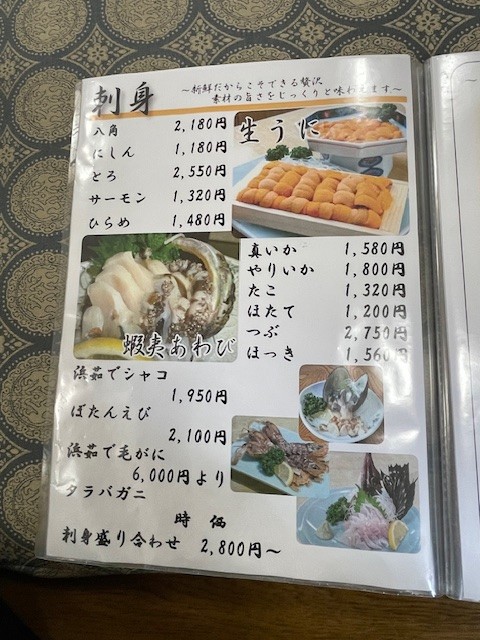 刺身
～新鮮だからこそできる贅沢
素材の旨さをじっくりと味わえます～
八角 2,180円
にしん 1,180円
とろ 2,550円
サーモン 1,320円
ひらめ 1,480円
生うに
蝦夷あわび
真いか 1,580円
やりいか 1,800円
たこ 1,320円
ほたて 1,200円
つぶ 2,750円
ほっき 1,560円
浜茹でシャコ
1,950円
ぼたんえび
2,100円
浜茹で毛がに
6,000円より
タラバガニ
時価
刺身盛り合わせ 2,800円～